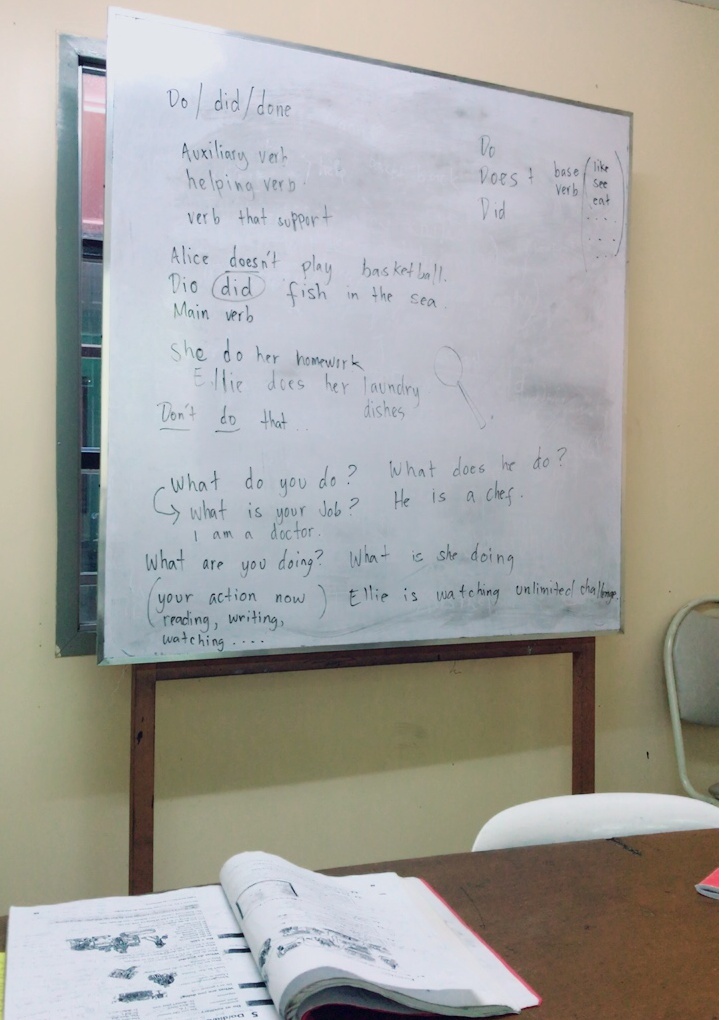 Do / did / done
Auxiliary verb
helping verb.
verb that support
Do
Does + base verb
Did
like
see
eat
Alice doesn't play basketball.
Dio did fish in the sea.
Main verb
She do her homework
Ellie does her laundry
dishes
Don't do that...
What do you do?
What is your Job?
I am a doctor.
What does he do?
He is a chef.
What are you doing?
(your action now)
reading, writing,
watching ....
What is she doing
Ellie is watching unlimited challenge.